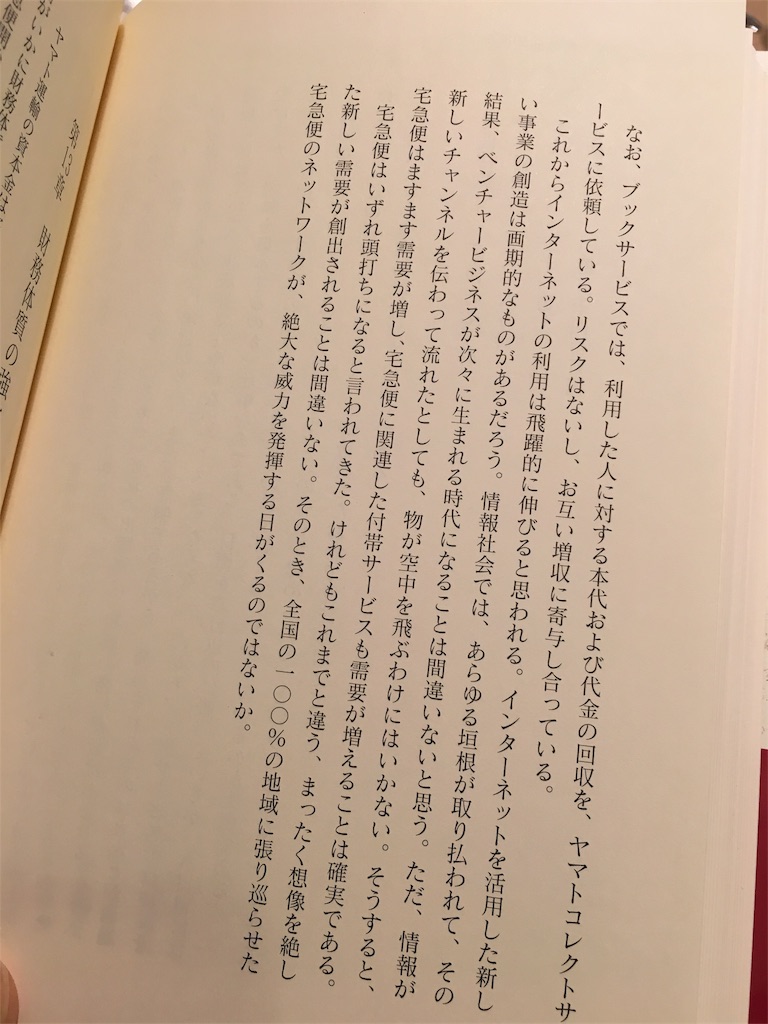 なお、ブックサービスでは、利用した人に対する本代および代金の回収を、ヤマトコレクトサ
ービスに依頼している。リスクはないし、お互い増収に寄与し合っている。
これからインターネットの利用は飛躍的に伸びると思われる。インターネットを活用した新し
い事業の創造は画期的なものがあるだろう。情報社会では、あらゆる垣根が取り払われて、その
結果、ベンチャービジネスが次々に生まれる時代になることは間違いないと思う。ただ、情報が
新しいチャンネルを伝わって流れたとしても、物が空中を飛ぶわけにはいかない。そうすると、
宅急便はますます需要が増し、宅急便に関連した付帯サービスも需要が増えることは確実である。
宅急便はいずれ頭打ちになると言われてきた。けれどもこれまでと違う、まったく想像を絶し
た新しい需要が創出されることは間違いない。そのとき、全国の一〇〇％の地域に張り巡らせた
宅急便のネットワークが、絶大な威力を発揮する日がくるのではないか。
第13章　財務体質の強
ヤマト運輸の資本金は
がいかに財務体